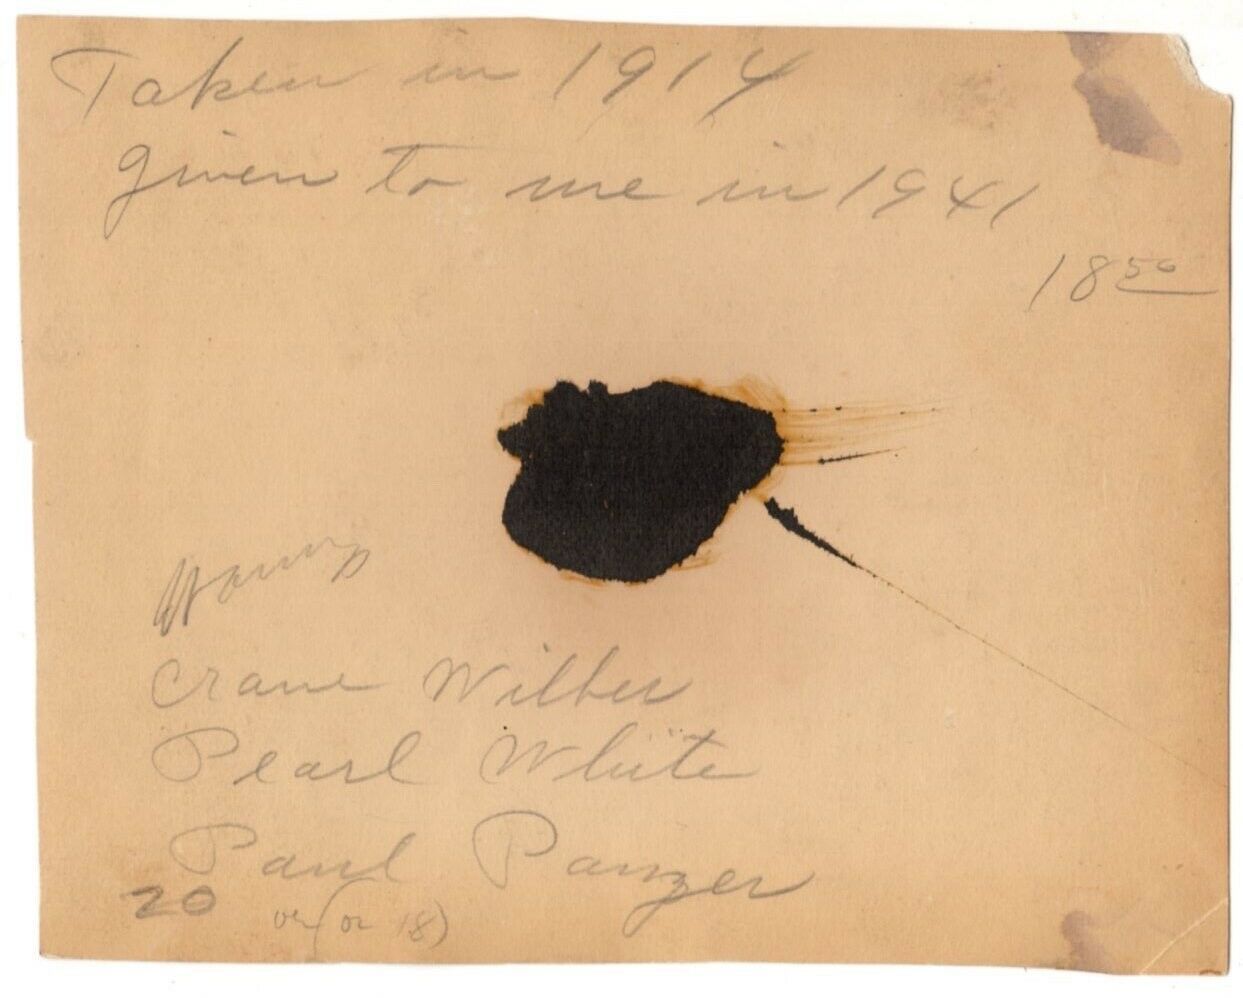 Taken in 1914
given to me in 1941
18 50
Crane Wilber
Pearl White
Paul Panzer
20
(or 18)